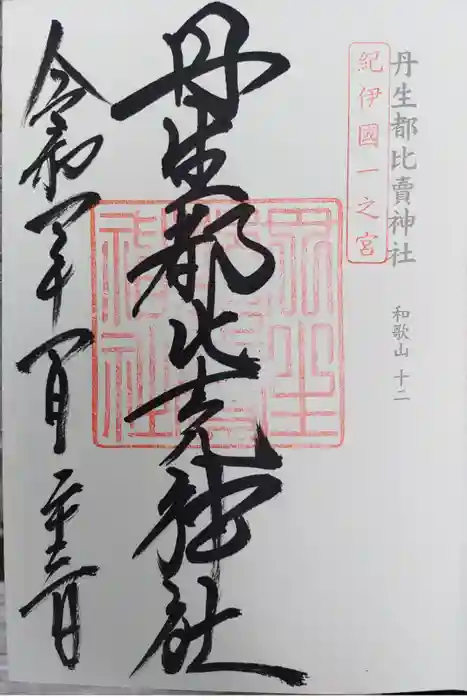 丹生都比賣神社 和歌山 十二
紀伊國一之宮
丹生都比売神社
丹生都比賣神社
令和四年四月二十三日